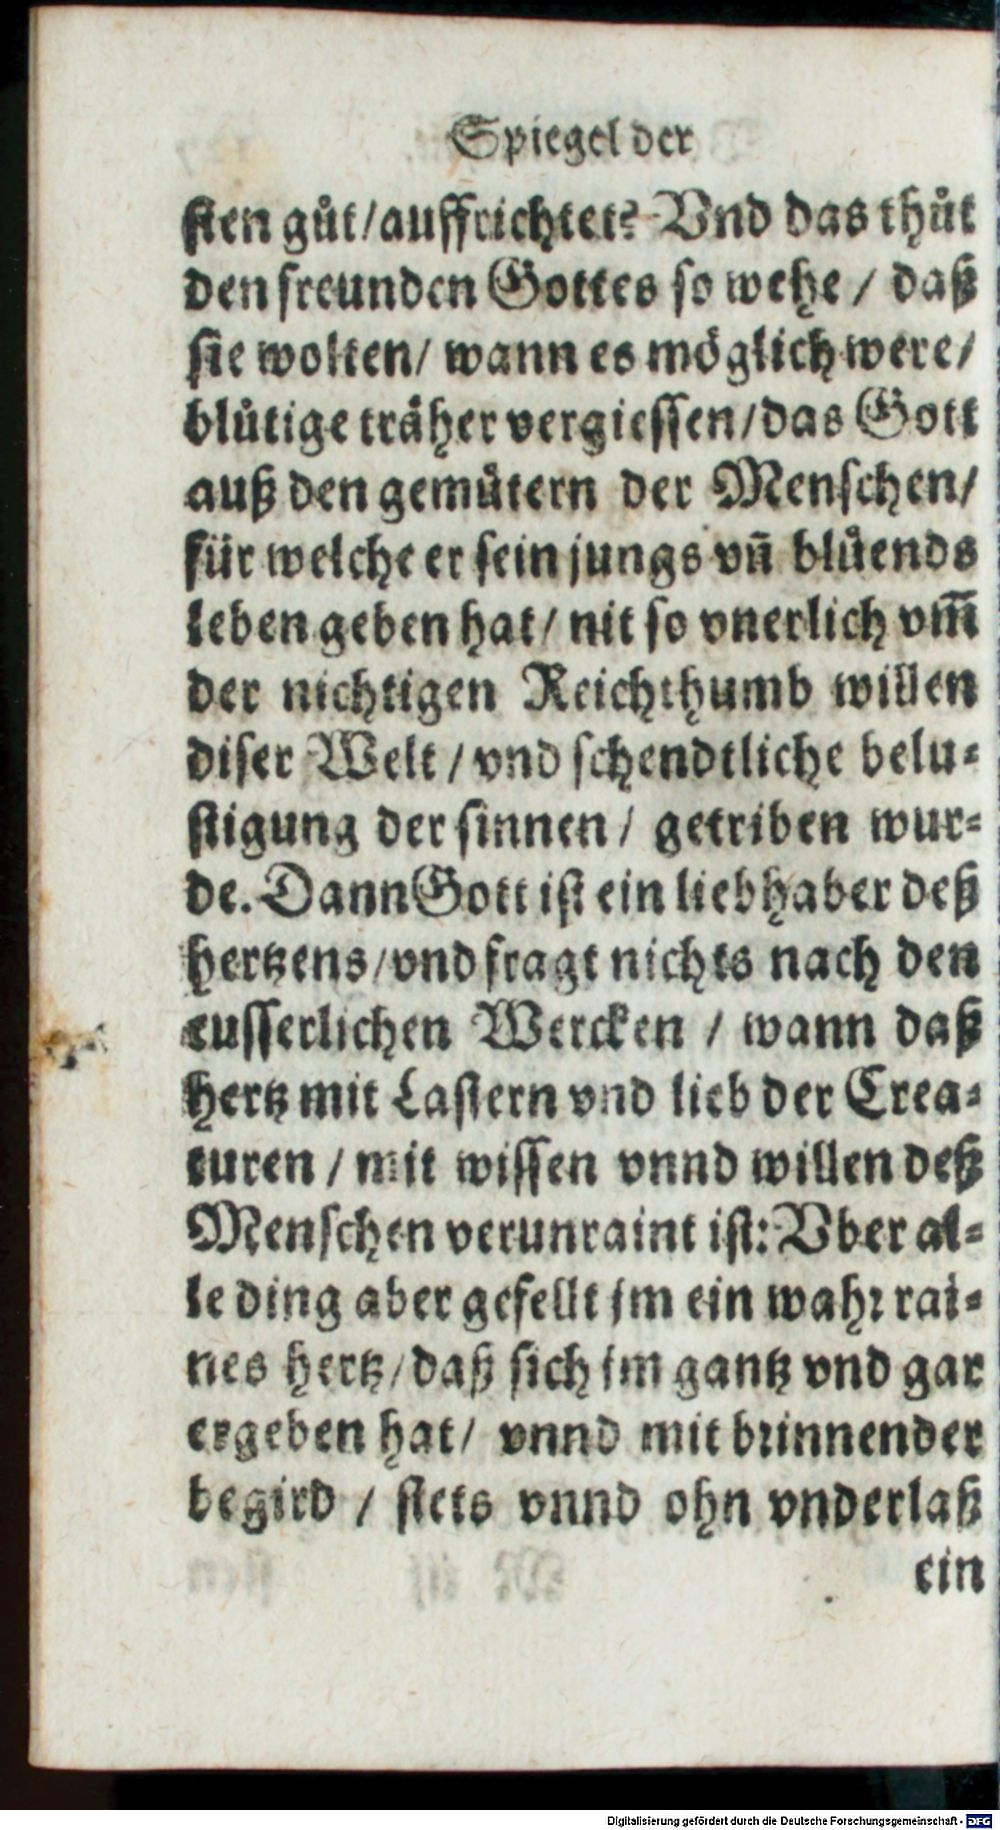 Spiegel der
sten gůt/auffrichtet? Vnd das thůt
den freunden Gottes so wehe / daß
sie wolten/ wann es möglich were/
blůtige träher vergiessen/das Gott
auß den gemůtern der Menschen/
für welche er sein jungs vn̄ blůends
leben geben hat/ nit so vnerlich vm̄
der nichtigen Reichthumb willen
diser Welt / vnd schendtliche belu-
stigung der sinnen / getriben wur-
de. Dann Gott ist ein liebhaber deß
hertzens/vnd fragt nichts nach den
eusserlichen Wercken / wann daß
hertz mit Lastern vnd lieb der Crea-
turen / mit wissen vnnd willen deß
Menschen verunraint ist: Vber al-
le ding aber gefellt jm ein wahr rai-
nes hertz/daß sich jm gantz vnd gar
ergeben hat/ vnnd mit brinnender
begird / stets vnnd ohn vnderlaß
ein
Digitalisierung gefördert durch die Deutsche Forschungsgemeinschaft - DFG